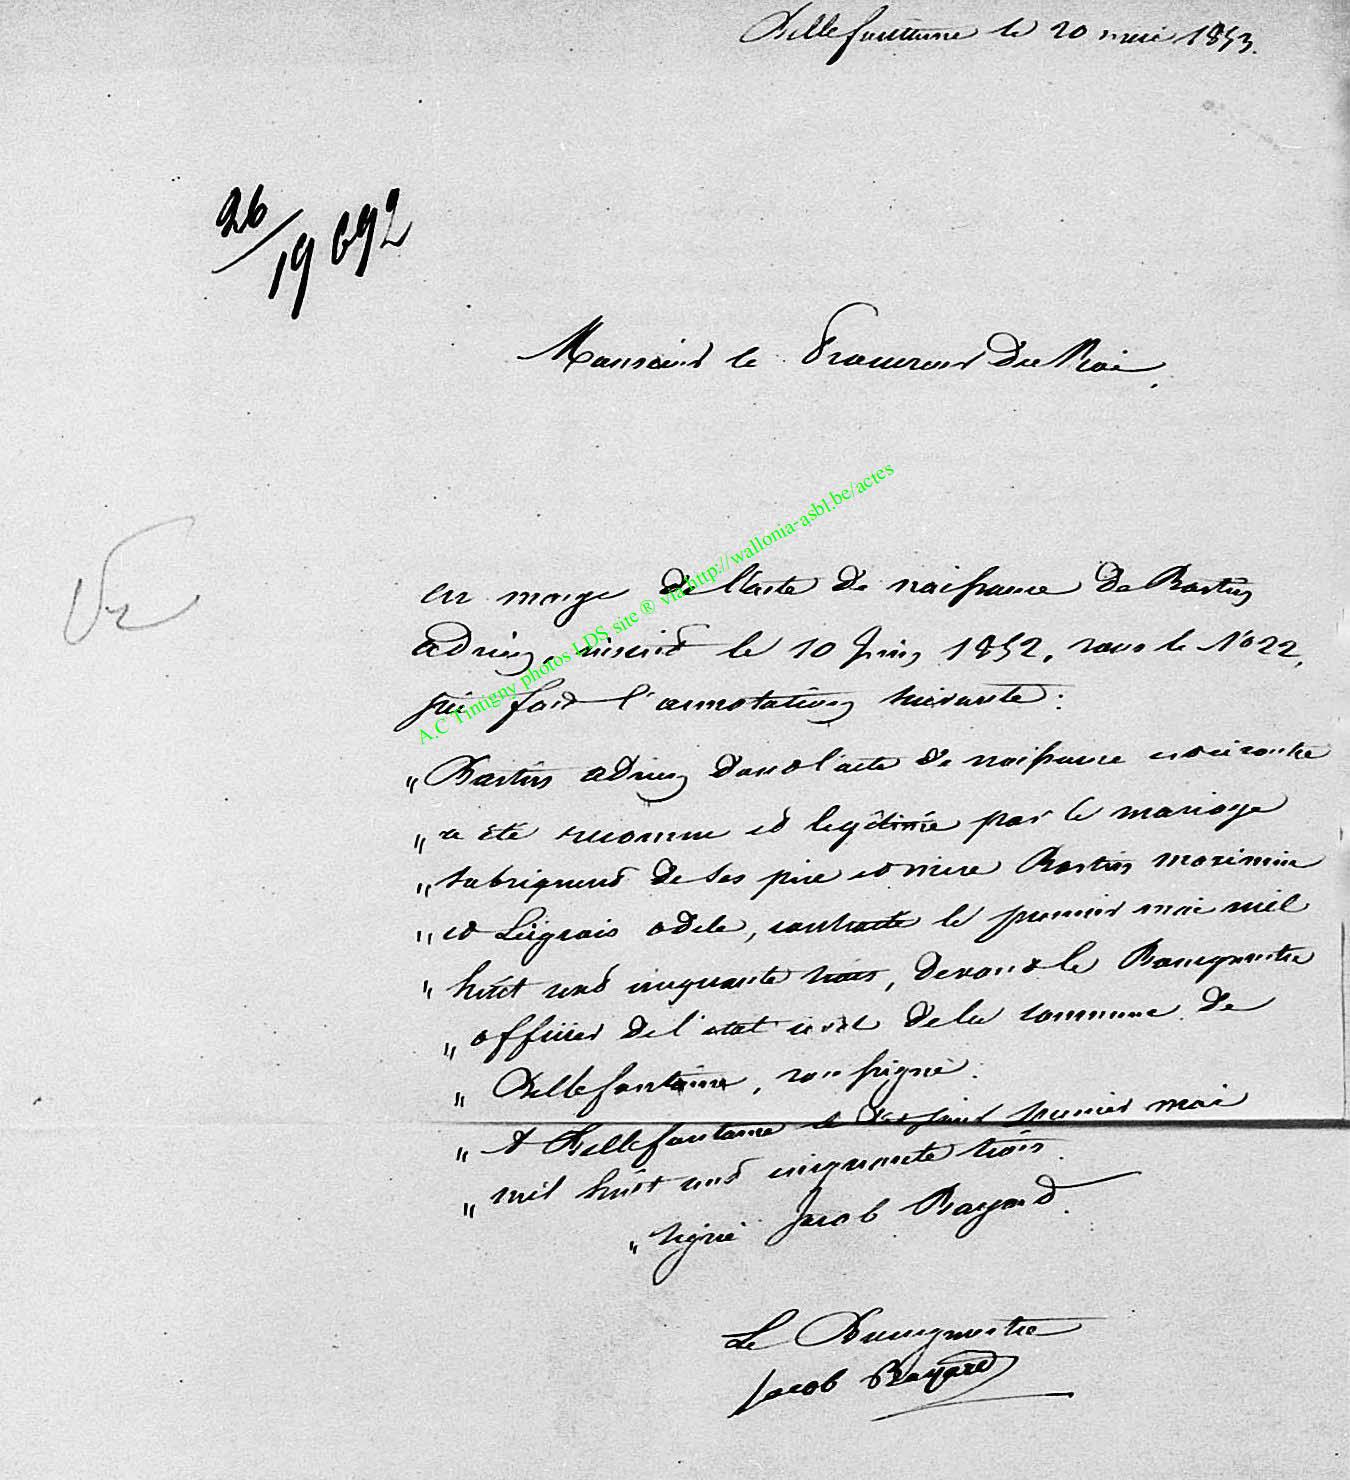 Bellefontaine le 20 mai 1853.
26/19692
Monsieur le Procureur du Roi,
Vu
en marge de l'acte de naissance de Bastin
adrien, inscrit le 10 Juin 1852, sous le No 22,
j'ai fait l'annotation suivante :
" Bastin adrien dans l'acte de naissance est ci contre
" a été reconnu et legitimé par le mariage
" subsequent de ses père et mère Bastin maximin
" et Legrais odele, contracté le premier mai mil
" huit cent cinquante trois, devant le Bourgmestre
" officier de l'état civil de la commune de
" Bellefontaine, soussigné.
" A Bellefontaine le premier mai
" mil huit cent cinquante trois.
" signé Jacob Bayard.
Le Bourgmestre
Jacob Bayard
A.C Tintigny photos LDS site ® via http://wallonia-asbl.be/actes